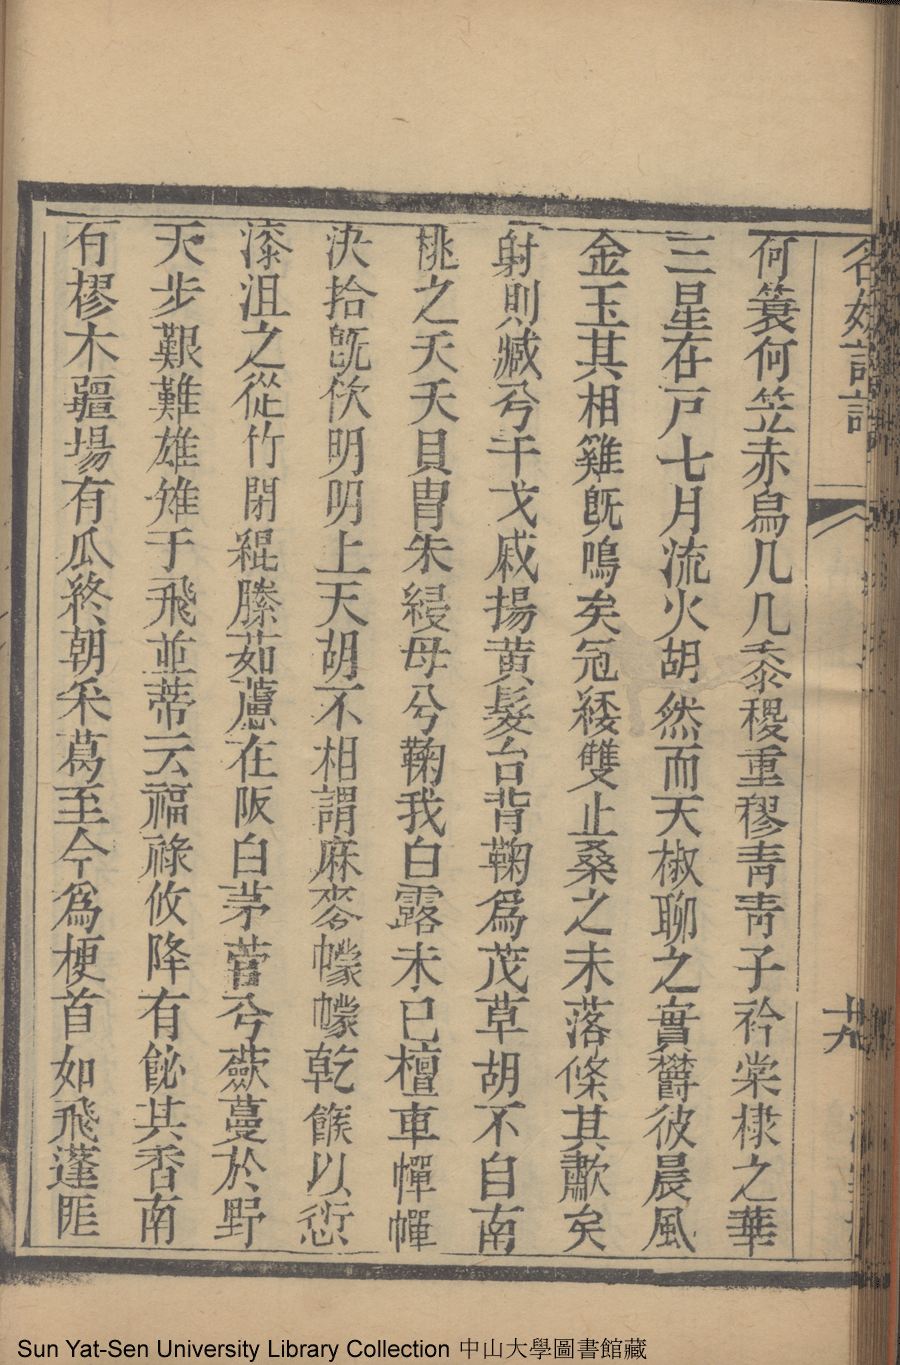 何簑何笠赤舄几几黍稷重穋靑靑子衿棠棣之華
三星在戸七月流火胡然而天椒聊之實欝彼晨風
金玉其相雞旣鳴矣冠緌雙止桑之未落條其歗矣
射則臧兮干戈戚揚黄髮台背鞠爲茂草胡不自南
桃之夭夭貝胄朱綅母兮鞠我白露未已檀車幝幝
決拾旣佽明明上天胡不相謂麻麥幪幪乾餱以愆
漆沮之從竹閉緄縢茹藘在阪白茅菅兮蘞蔓於野
天步艱難雄雉于飛並蒂云福祿攸降有飶其香南
有樛木疆場有瓜終朝采葛至今爲梗首如飛蓬匪
Sun Yat-Sen University Library Collection 中山大學圖書館藏